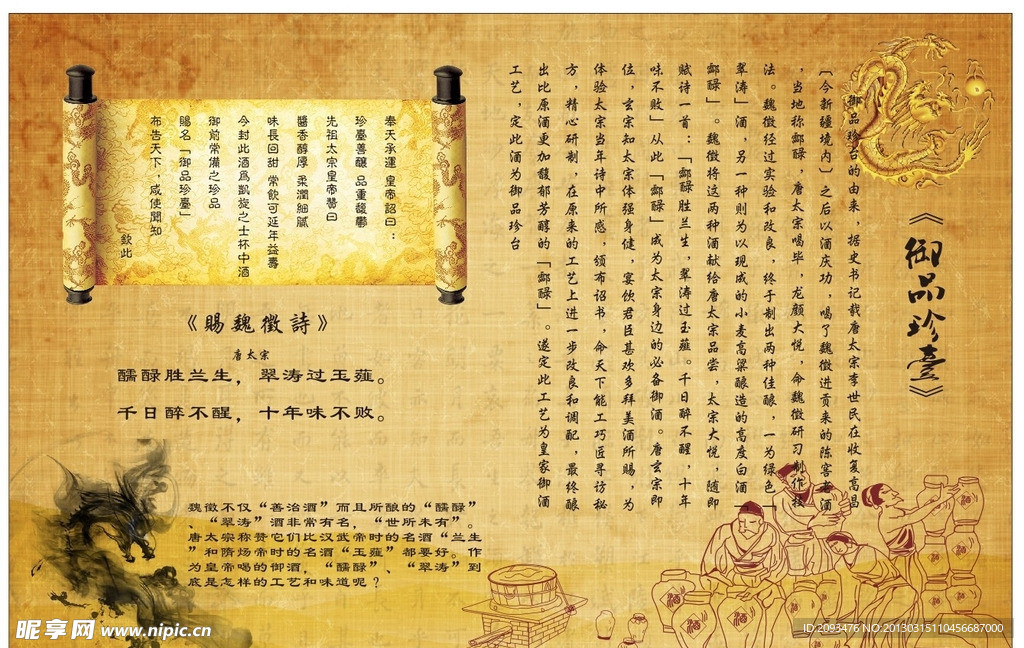 《御品珍臺》
御品珍台的由来，据史书记载唐太宗李世民在收复高昌
（今新疆境内）之后以酒庆功，喝了魏徵进贡来的陈客者酒
，当地称酃醁，唐太宗喝毕，龙颜大悦，命魏徵研习制作技
法。魏徵经过实验和改良，终于制出两种佳酿，一为绿色「
翠涛」酒，另一种则为以现成的小麦高粱酿造的高度白酒「
酃醁」。魏徵将这两种酒献给唐太宗品尝，太宗大悦，随即
赋诗一首：「酃醁胜兰生，翠涛过玉薤。千日醉不醒，十年
味不败」从此「酃醁」成为太宗身边的必备御酒。唐玄宗即
位，玄宗知太宗体强身健，宴饮君臣甚欢多拜美酒所赐，为
体验太宗当年诗中所感，颁布诏书，命天下能工巧匠寻访秘
方，精心研制，在原来的工艺上进一步改良和调配，最终酿
出比原酒更加馥郁芳醇的「酃醁」。遂定此工艺为皇家御酒
工艺，定此酒为御品珍台
奉天承運 皇帝詔曰：
珍臺善釀 品重馥鬱
先祖太宗皇帝贊曰
醬香醇厚 柔潤細膩
味長回甜 常飲可延年益壽
今封此酒爲凱旋之士杯中酒
御前常備之珍品
賜名「御品珍臺」
布告天下，咸使聞知
欽此
《賜魏徵詩》
唐太宗
醹醁胜兰生，翠涛过玉薤。
千日醉不醒，十年味不败。
魏徵不仅“善治酒”而且所酿的“醹醁”
、“翠涛”酒非常有名，“世所未有”。
唐太宗称赞它们比汉武帝时的名酒“兰生
”和隋炀帝时的名酒“玉薤”都要好。作
为皇帝喝的御酒，“醹醁”、“翠涛”到
底是怎样的工艺和味道呢？
酒
酒
酒
酒
昵享网 www.nipic.cn
ID:2093476 NO:20130315110456687000